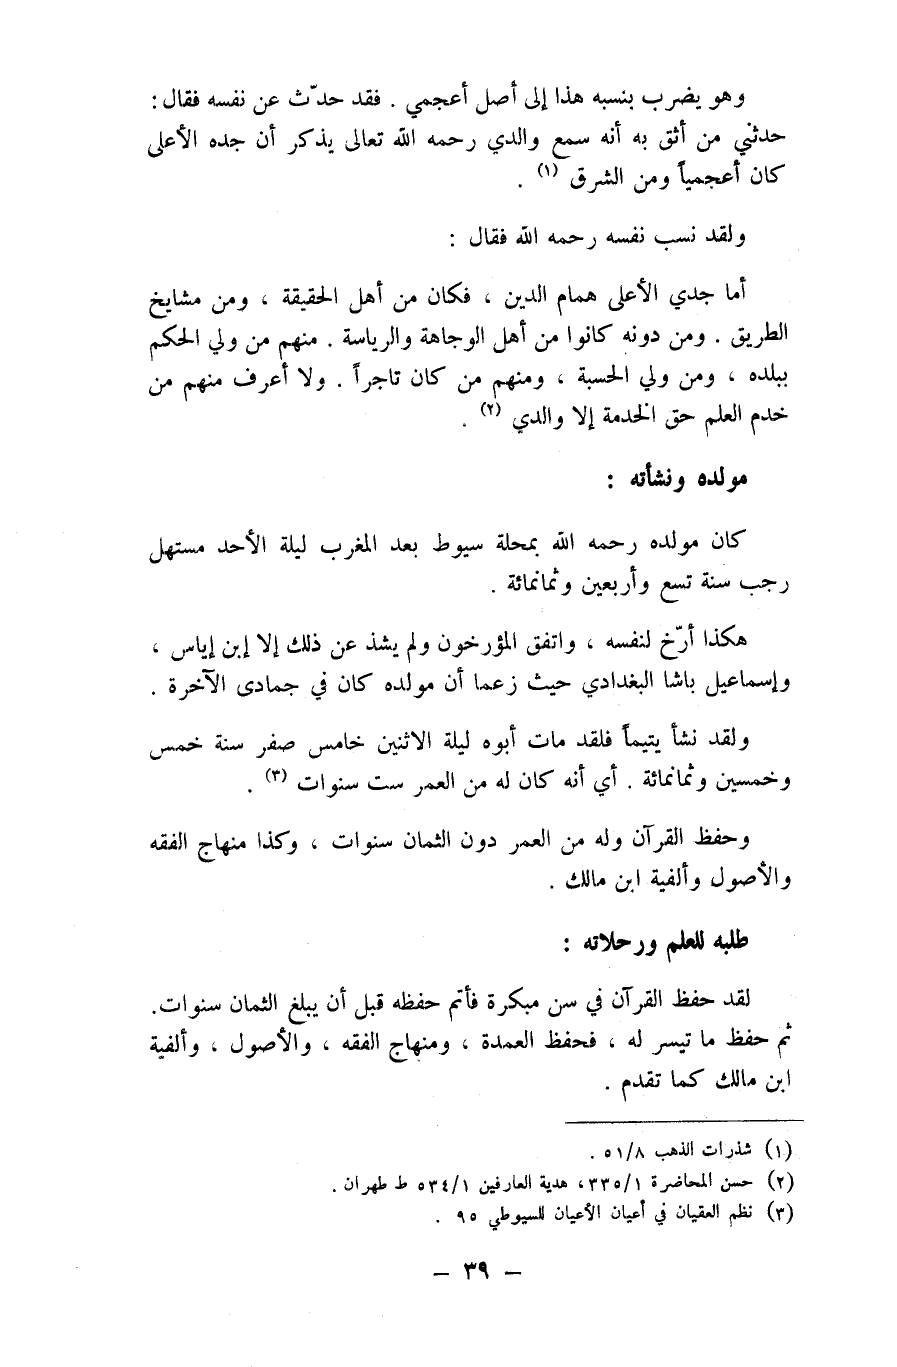 وهو يضرب بنسبه هذا إلى أصل أعجمي . فقد حدّث عن نفسه فقال :
حدثني من أثق به أنه سمع والدي رحمه الله تعالى يذكر أن جده الأعلى
كان أعجمياً ومن الشرق (١) .
ولقد نسب نفسه رحمه الله فقال :
أما جدي الأعلى همام الدين ، فكان من أهل الحقيقة ، ومن مشايخ
الطريق . ومن دونه كانوا من أهل الوجاهة والرياسة . منهم من ولي الحكم
ببلده ، ومن ولي الحسبة ، ومنهم من كان تاجراً . ولا أعرف منهم من
خدم العلم حق الخدمة إلا والدي (٢) .
مولده ونشأته :
كان مولده رحمه الله بمحلة سيوط بعد المغرب ليلة الأحد مستهل
رجب سنة تسع وأربعين وثمانمائة .
هكذا أرّخ لنفسه ، واتفق المؤرخون ولم يشذ عن ذلك إلا إبن إياس ،
وإسماعيل باشا البغدادي حيث زعما أن مولده كان في جمادى الآخرة .
ولقد نشأ يتيماً فلقد مات أبوه ليلة الاثنين خامس صفر سنة خمس
وخمسين وثمانمائة . أي أنه كان له من العمر ست سنوات (٣) .
وحفظ القرآن وله من العمر دون الثمان سنوات ، وكذا منهاج الفقه
والأصول وألفية ابن مالك .
طلبه للعلم ورحلاته :
لقد حفظ القرآن في سن مبكرة فأتم حفظه قبل أن يبلغ الثمان سنوات.
ثم حفظ ما تيسر له ، فحفظ العمدة ، ومنهاج الفقه ، والأصول ، وألفية
ابن مالك كما تقدم .
(١) شذرات الذهب ٥١/٨ .
(٢) حسن المحاضرة ٣٣٥/١ ، هدية العارفين ٥٣٤/١ ط طهران .
(٣) نظم العقيان في أعيان الأعيان للسيوطي ٩٥ .
– ٣٩ –